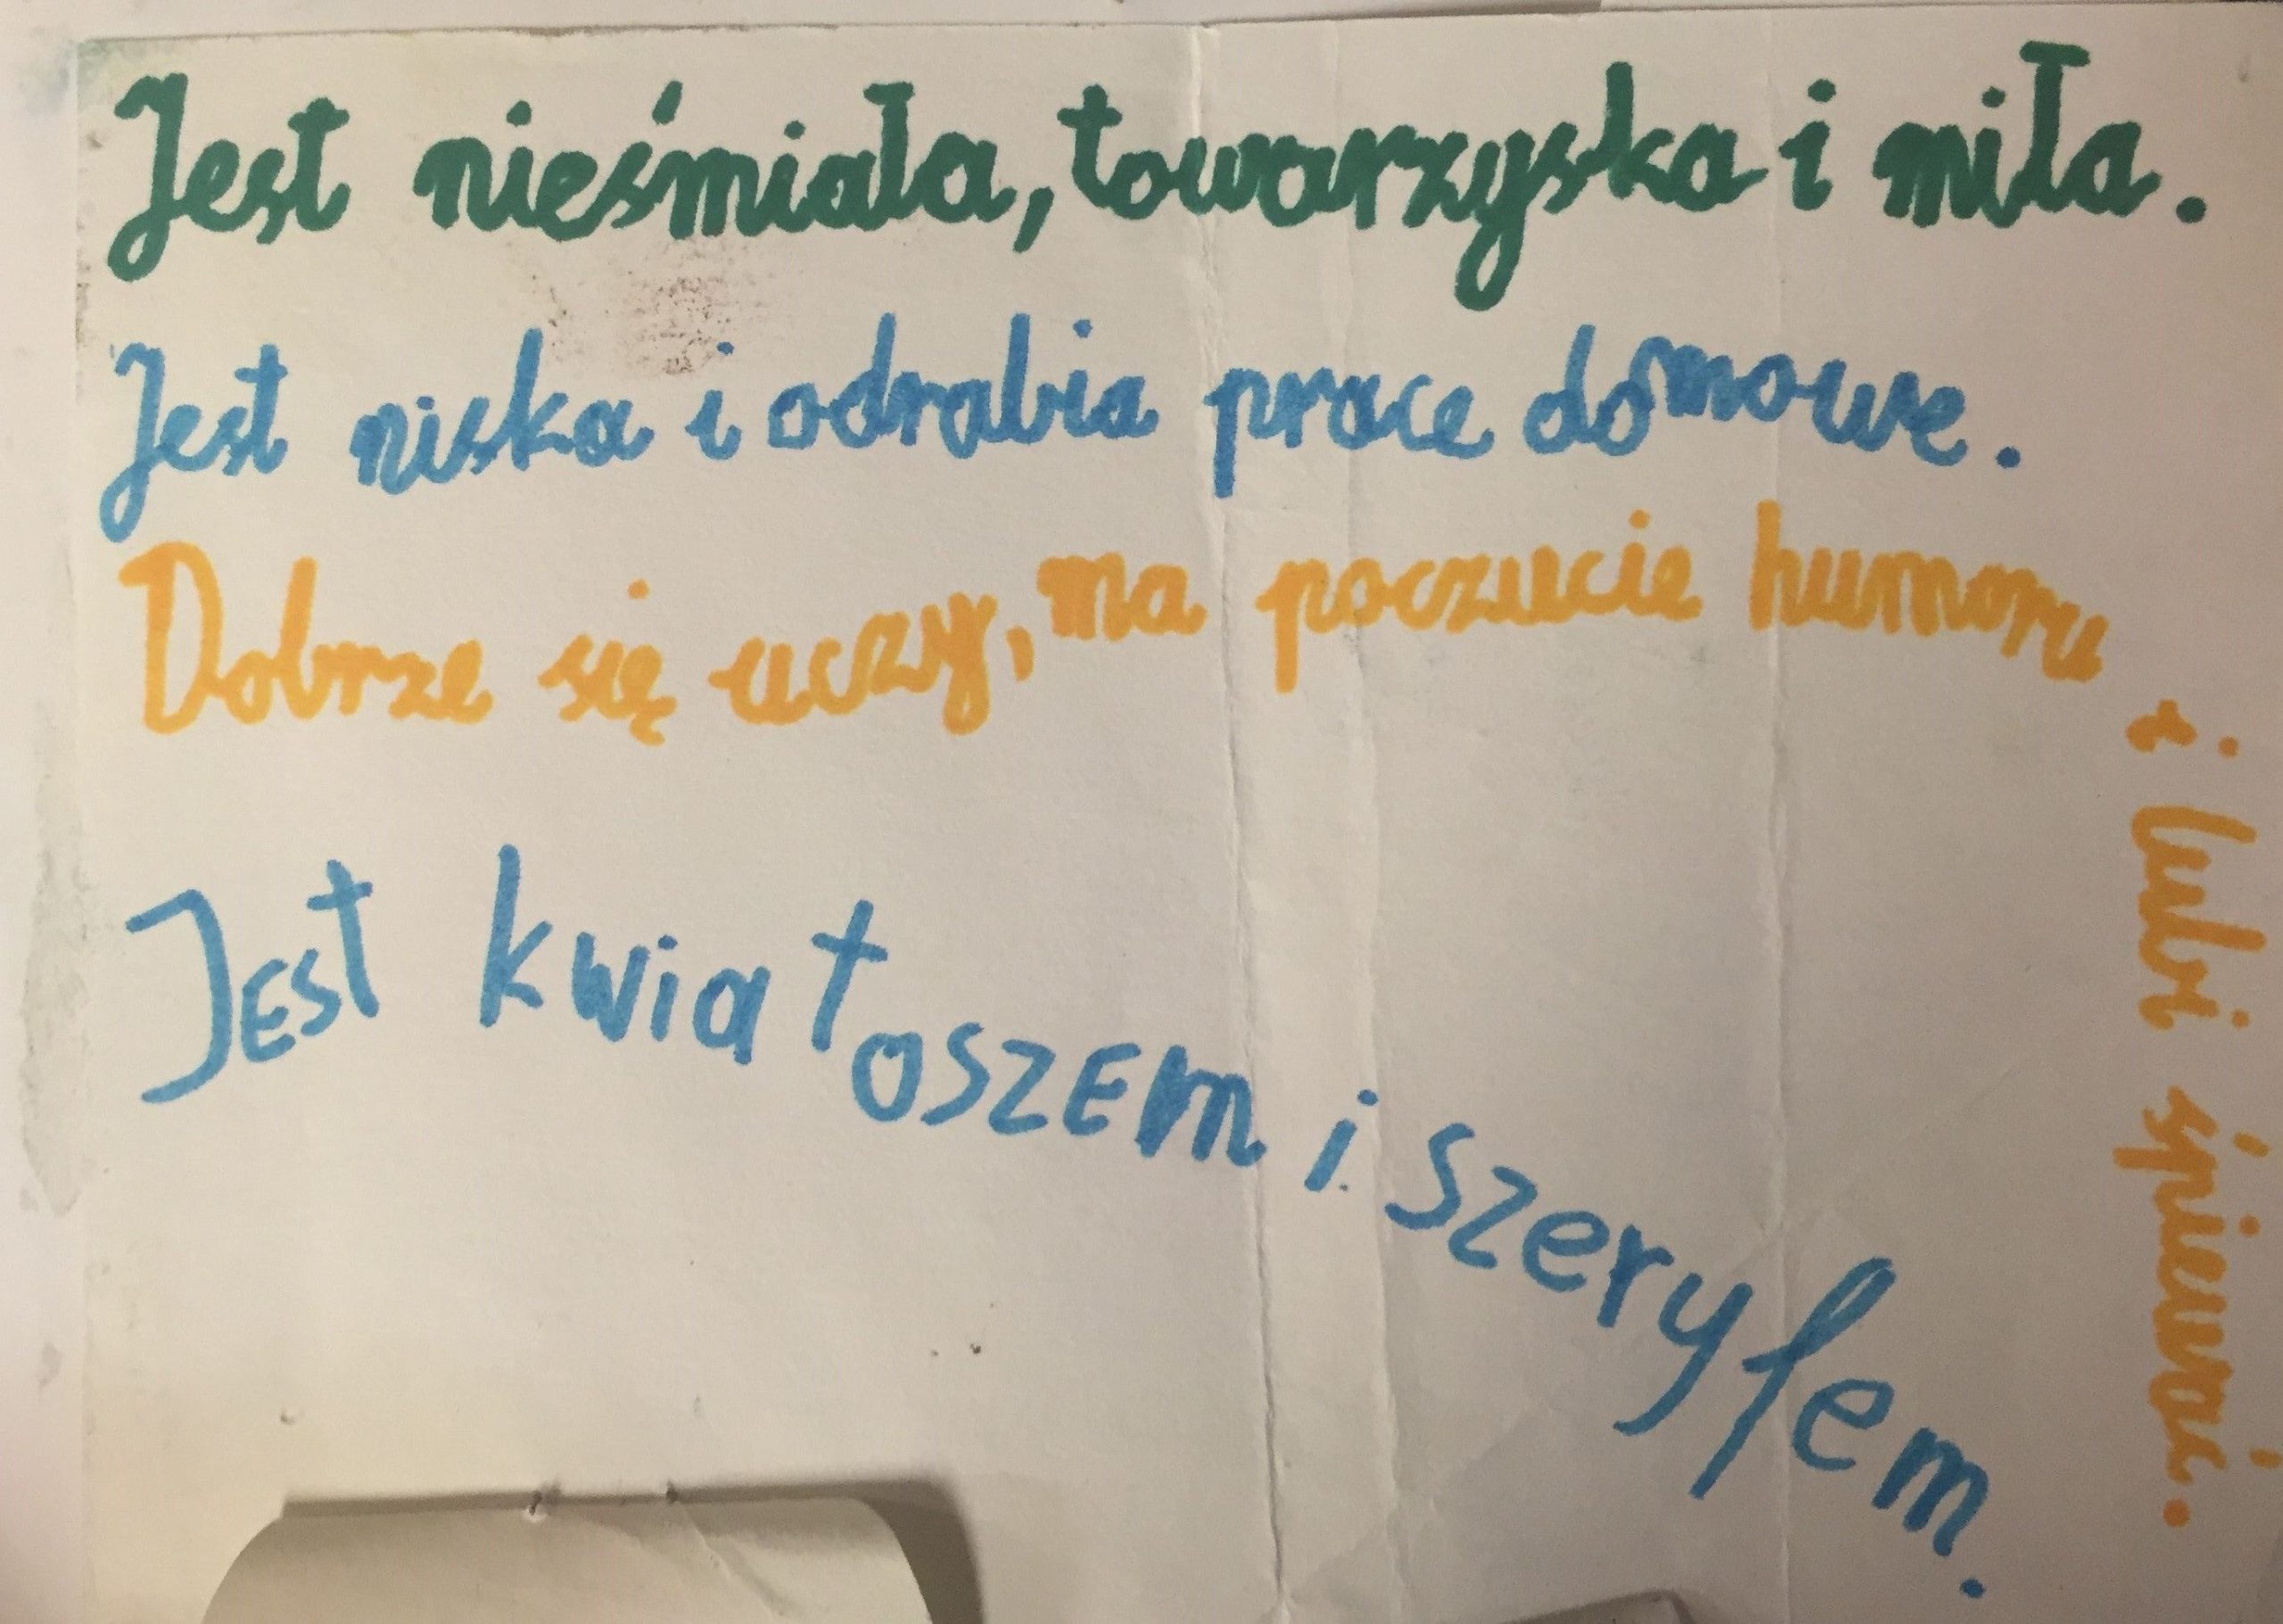 Jest nieśmiała, towarzyska i miła.
Jest niska i odrabia prace domowe.
Dobrze się uczy, ma poczucie humoru
i lubi śpiewać.
Jest kwiatoszem i szeryfem.